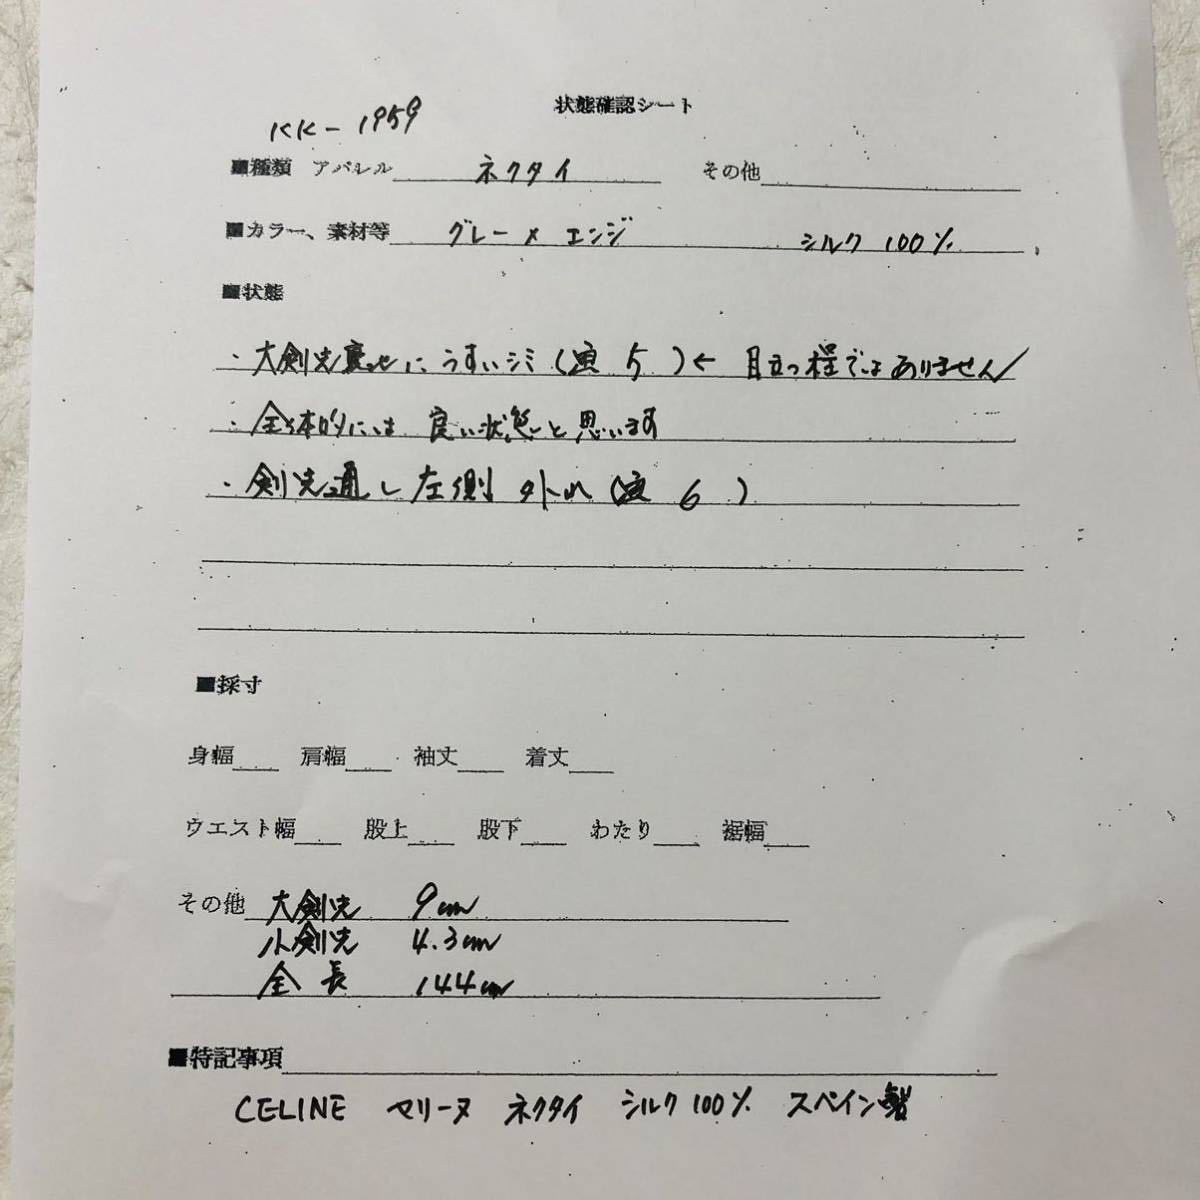 状態確認シート
KK-1959
■種類 アパレル ネクタイ その他
■カラー、素材等 グレー×エンジ シルク 100%
■状態
・大剣先裏地にうすいシミ(画 5 )← 目立つ程ではありません
・全体的には 良い状態と思います
・剣先通し左側 外れ(画 6 )
■採寸
身幅 肩幅 袖丈 着丈
ウエスト幅 股上 股下 わたり 裾幅
その他 大剣先 9cm
小剣先 4.3cm
全長 144cm
■特記事項
CELINE セリーヌ ネクタイ シルク100% スペイン製